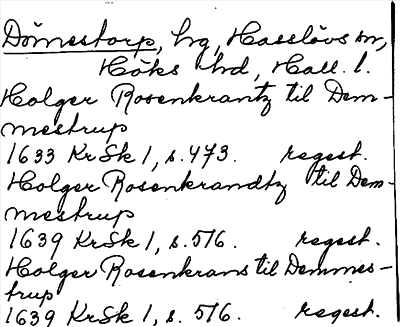 Dömestorp, hg, Hasslövs sn,
Höks hd, Hall. l.
Holger Rosenkrantz til Dem-
mestrup
1633 KrSk 1, s. 473. regest.
Holger Rosenkrandtz til Dem-
mestrup
1639 KrSk 1, s. 516. regest.
Holger Rosenkrans til Demmes-
trup
1639 KrSk 1, s. 516. regest.